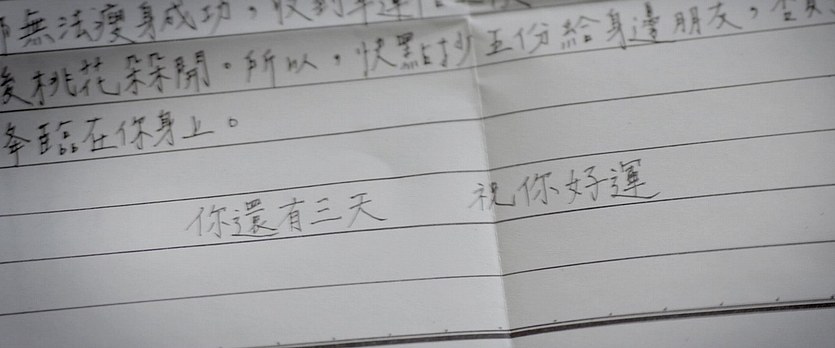 無法瘦身成功，收到幸運信之後
後桃花朵朵開。所以，快點抄五份給身邊朋友，否則
降臨在你身上。
你還有三天 祝你好運